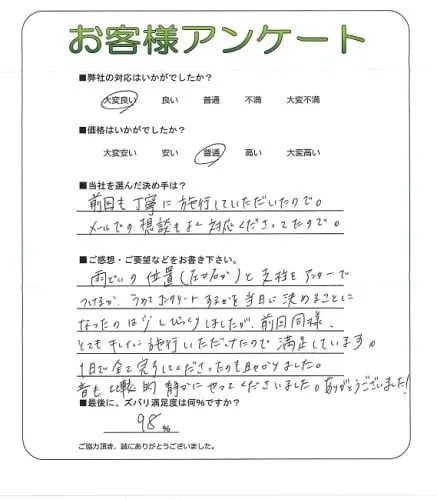 お客様アンケート
■弊社の対応はいかがでしたか?
大変良い 良い 普通 不満 大変不満
■価格はいかがでしたか?
大変安い 安い 普通 高い 大変高い
■当社を選んだ決め手は?
前回も丁寧に施行していただいたので。
メールでの相談もよく対応くださってたので。
■ご感想・ご要望などをお書き下さい。
雨どいの位置(左か右か)と支柱をアンカーで
つけるか、うめてコンクリートするかを当日に決めることに
なったのは少しびっくりしましたが、前回同様、
とてもキレイに施行いただけたので満足しています。
1日で全て完了してくださったのも助かりました。
音も比較的静かにやってくださいました。ありがとうございました!
■最後に、ズバリ満足度は何%ですか?
98%
ご協力頂き、誠にありがとうございました。